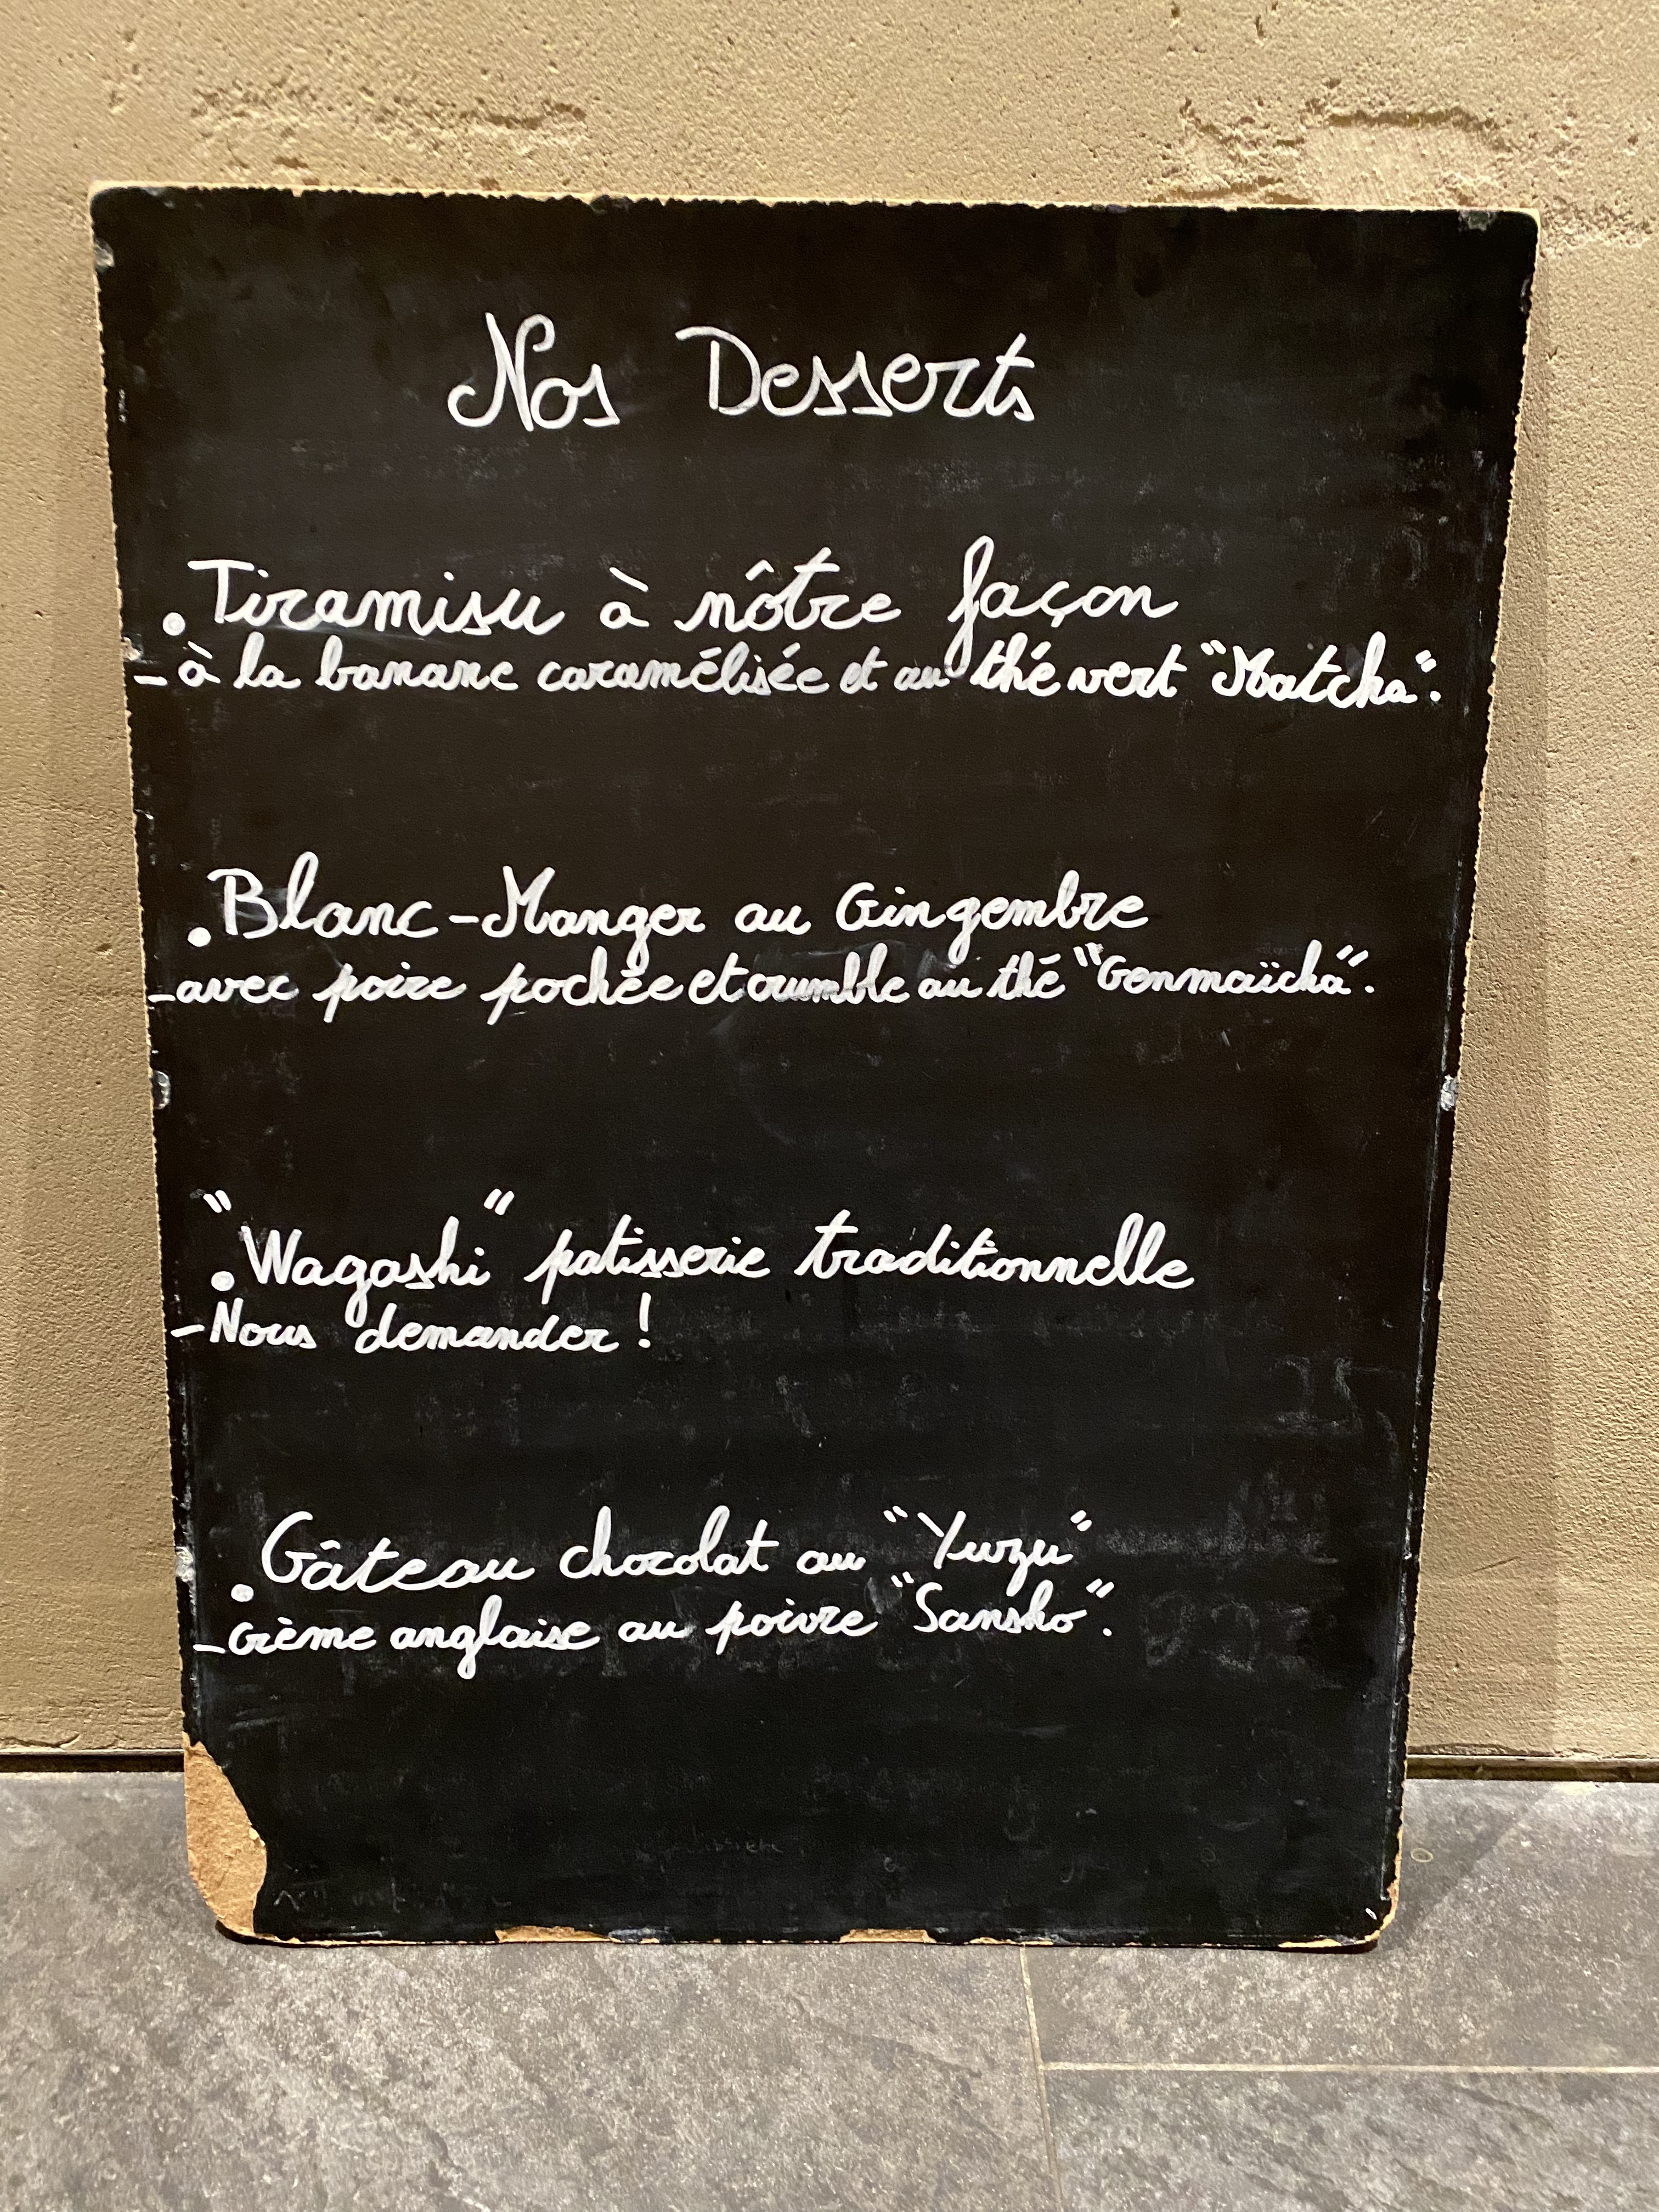 Nos Desserts
. Tiramisu à nôtre façon
- à la banane caramélisée et au thé vert "Matcha".
. Blanc-Manger au Gingembre
- avec poire pochée et crumble au thé "Genmaïcha".
. "Wagashi" patisserie traditionnelle
- Nous demander !
. Gâteau chocolat au "Yuzu"
- crème anglaise au poivre "Sansho".